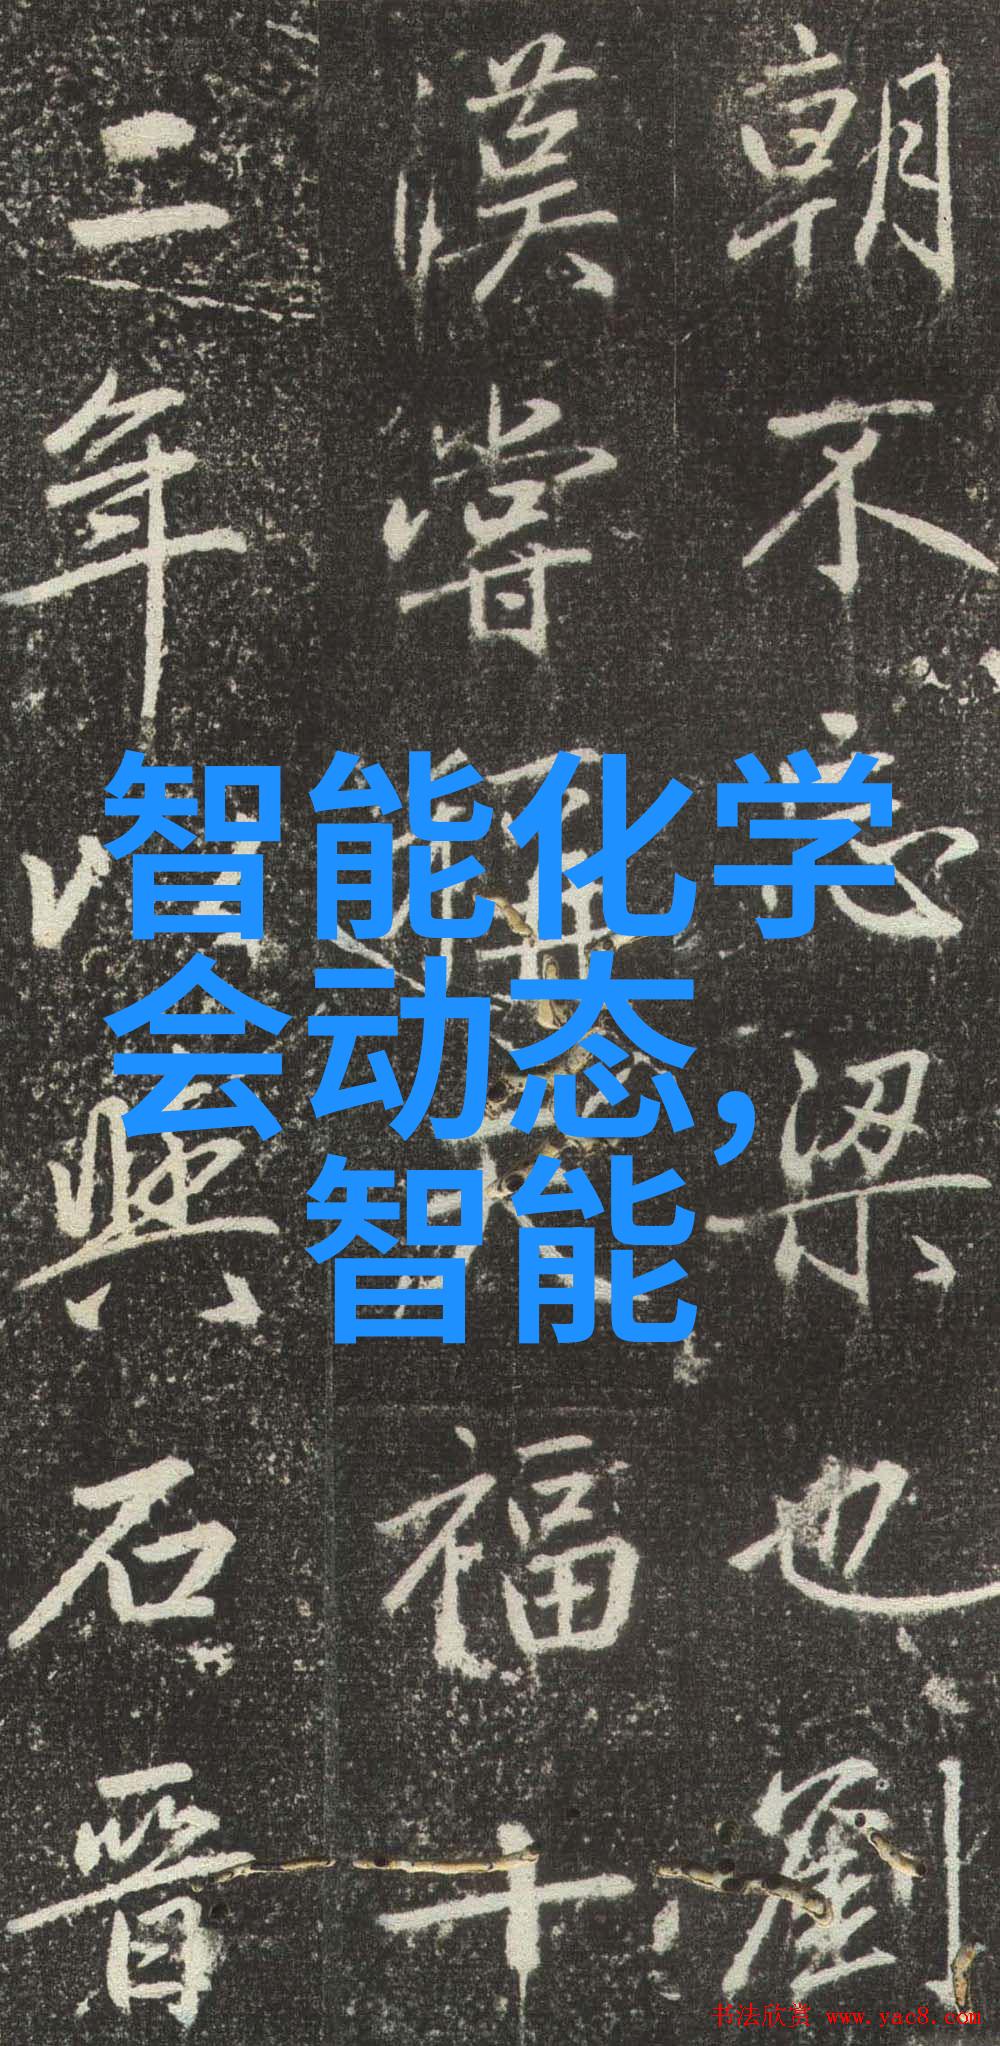 朝不忘梁也劉
漢嘗福十
二年石晉
智能化学
会动态,
智能
书法欣赏 www.yac8.com